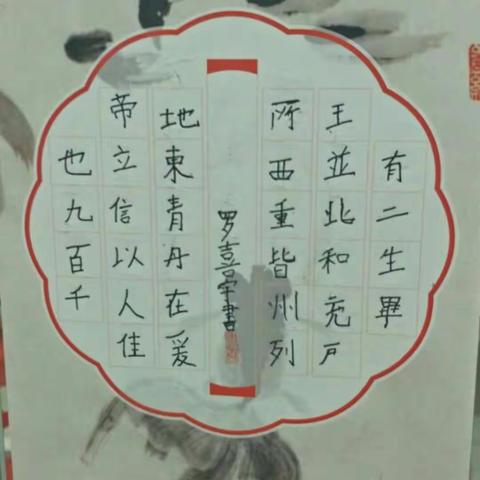 有二生畢
王並北和充戶
所西重皆州列
罗喜宇書
地東青丹在爰
帝立信以人佳
也九百千